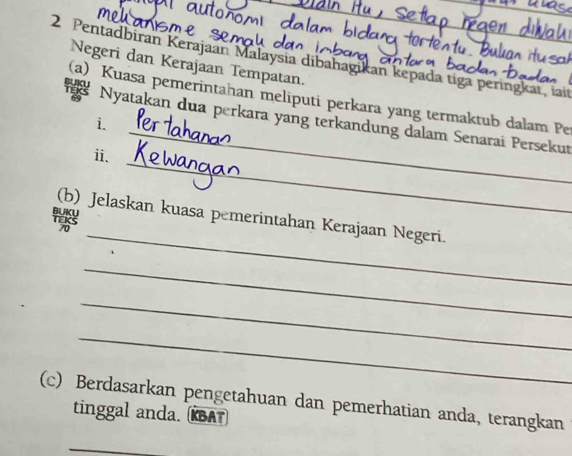 Itu, setiap negeri diwakili
autonomi dalam bidang tertentu. Bukan itu sahaja
mekanisme semak dan imbang antara badan-badan
2 Pentadbiran Kerajaan Malaysia dibahagikan kepada tiga peringkat, iait
Negeri dan Kerajaan Tempatan.
(a) Kuasa pemerintahan meliputi perkara yang termaktub dalam Pe
BUKU TEKS 69 Nyatakan dua perkara yang terkandung dalam Senarai Persekut
i. Pertahanan
ii. Kewangan
(b) Jelaskan kuasa pemerintahan Kerajaan Negeri.
BUKU TEKS 70
(c) Berdasarkan pengetahuan dan pemerhatian anda, terangkan
tinggal anda. KBAT